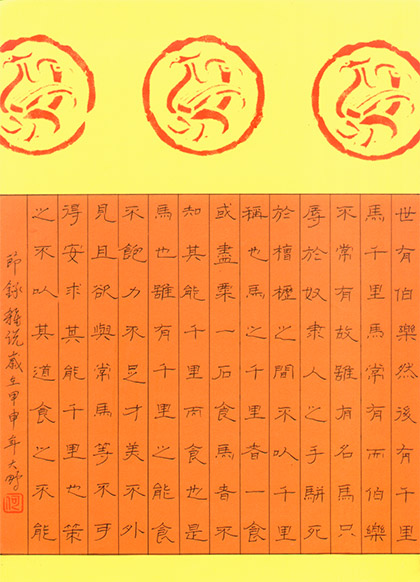 世有伯樂然後有千里
馬千里馬常有而伯樂
不常有故雖有名馬只
辱於奴隶人之手駢死
於槽櫪之間不以千里
稱也馬之千里者一食
或盡粟一石食馬者不
知其能千里而食也是
馬也雖有千里之能食
不飽力不足才美不外
見且欲與常馬等不可
得安求其能千里也策
之不以其道食之不能
節錄雜说歲在甲申年大野